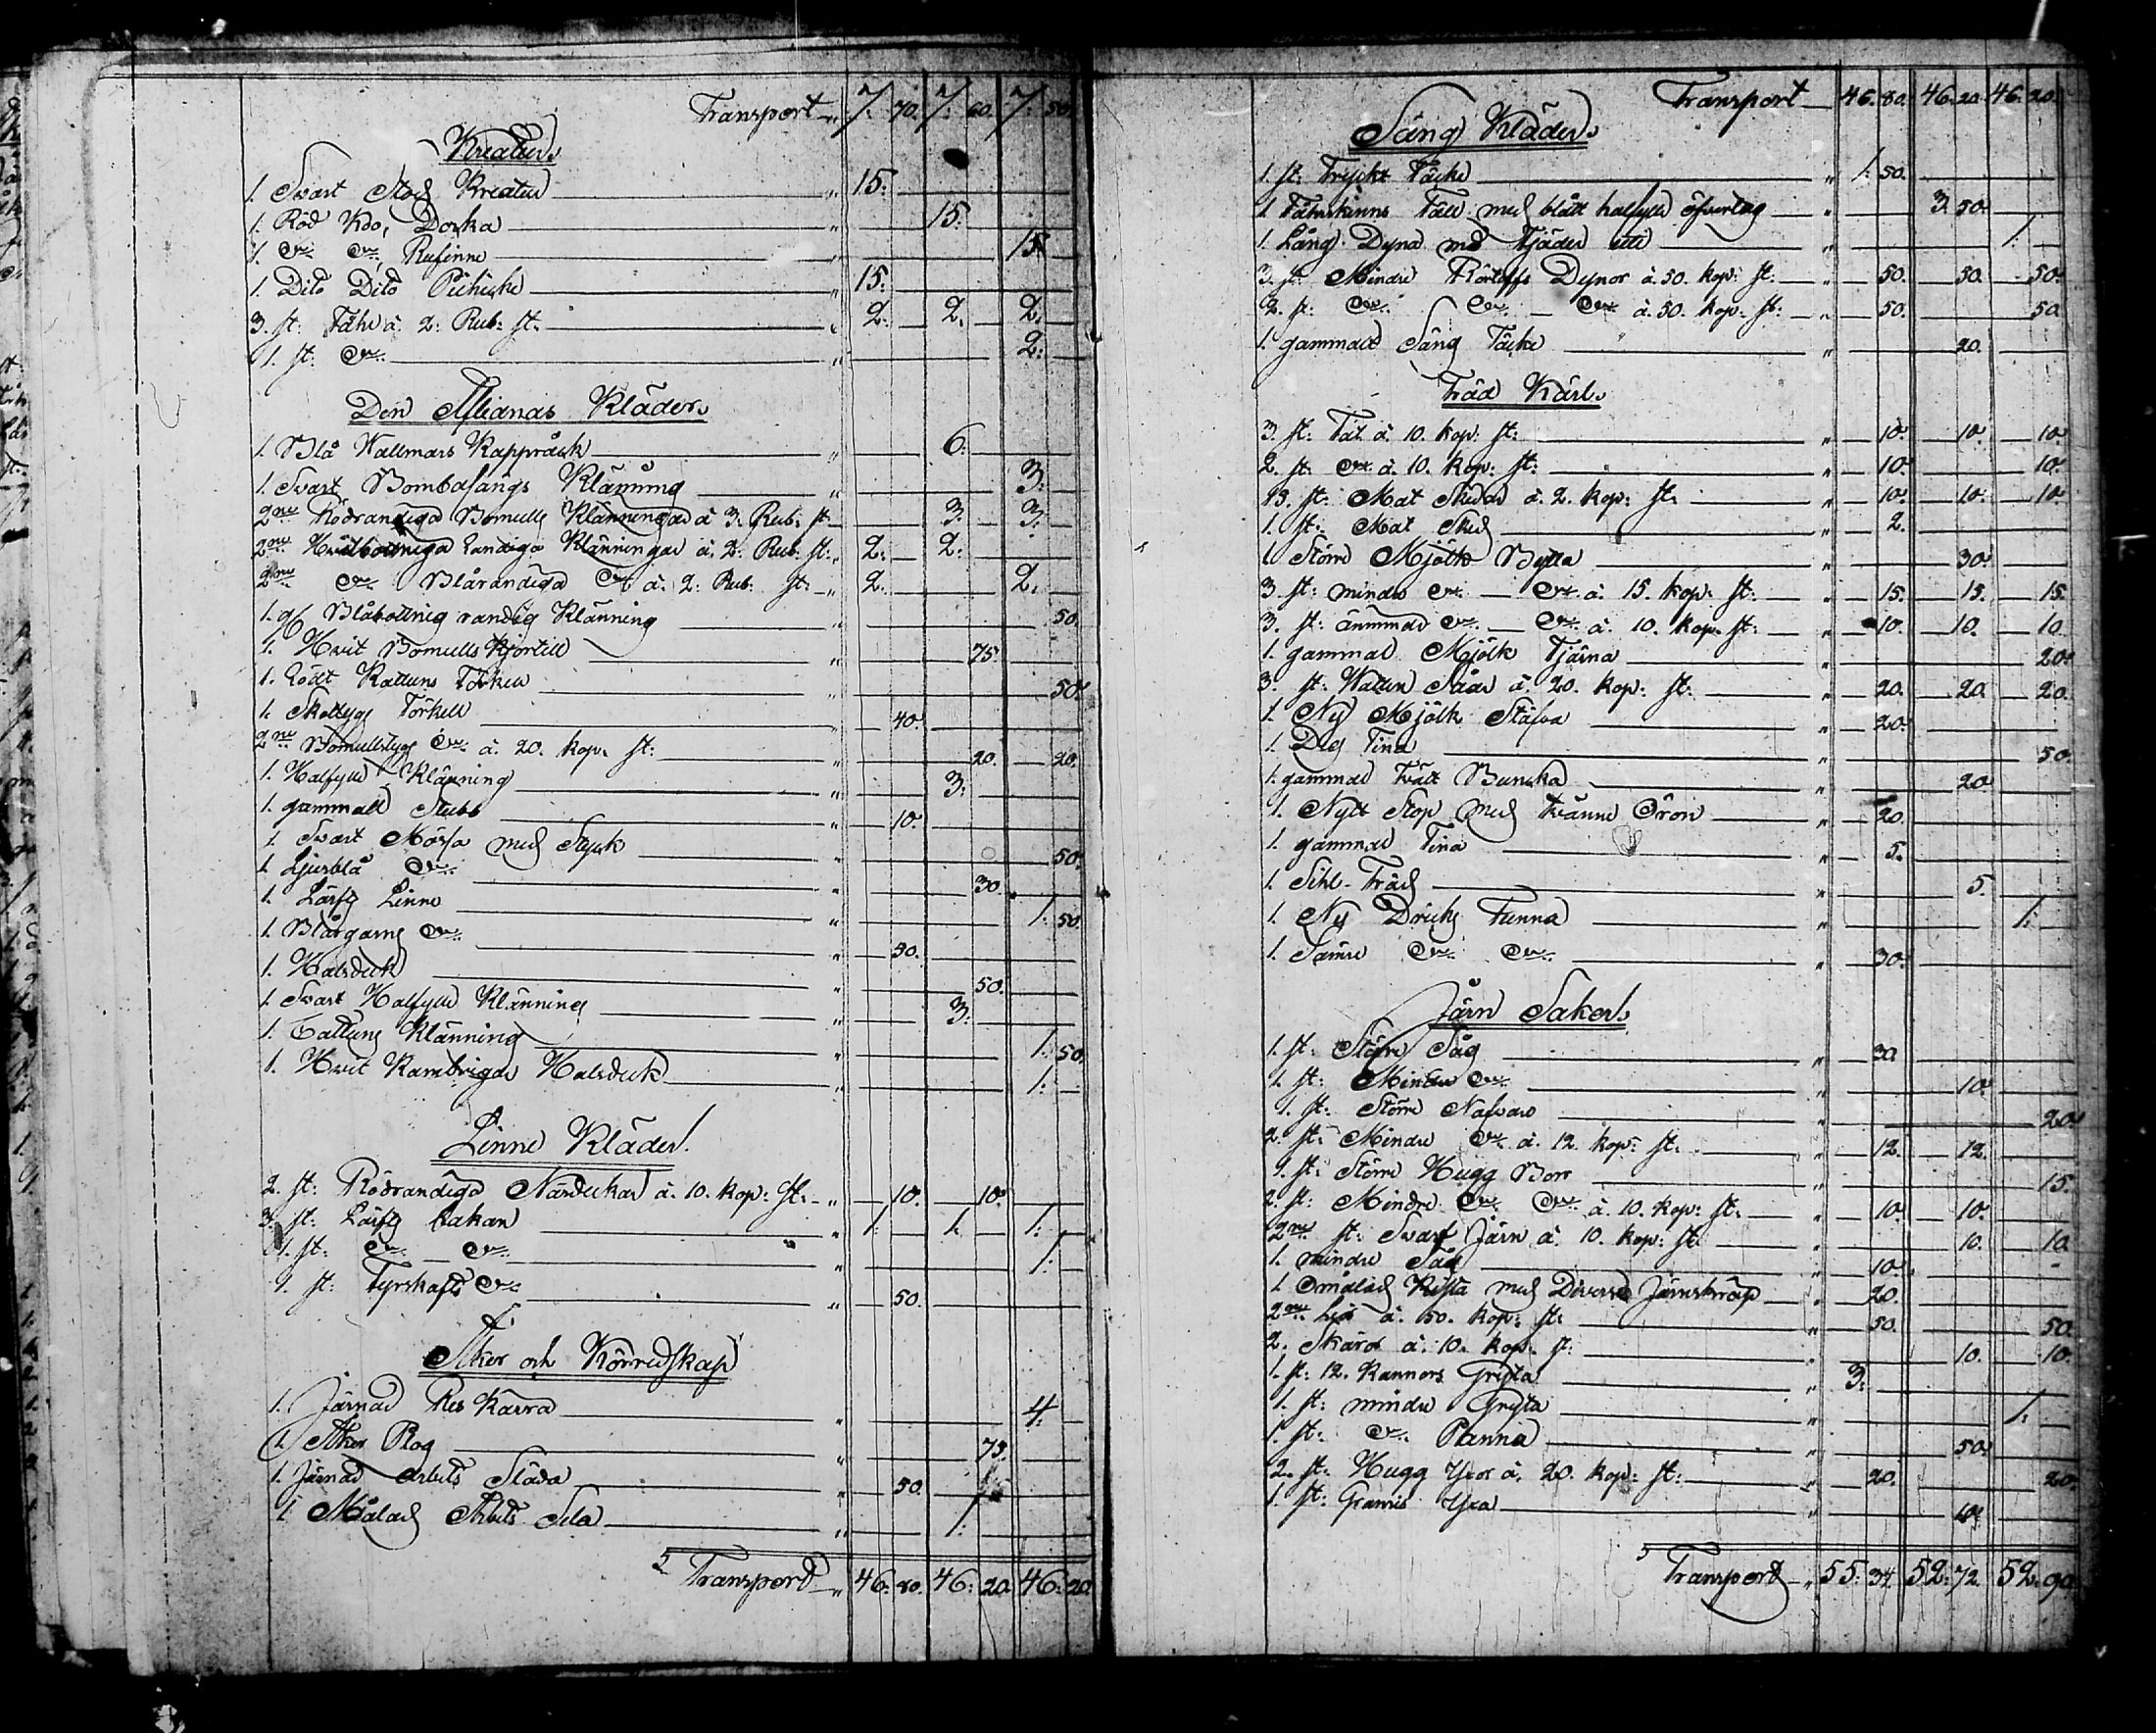 Transport 7: 70. 7: 60. 7: 50.
Kreatur.
1. Svart Stod Kreatur 15:
1. Röd Koo, Dorka 15:
1. Dito Dito, Rufinne 15:
1. Dito Dito 15:
3. st: Fåhr à 2: Rub: st: 2: 2: 2:
1. st: Dito 2:
Den Aflidnas Kläder.
1. Blå Wallmars Kappråck 6:
1. Svart Bombasangs Klänning 3:
2ne Rödrandiga Bomulls Klänningar à 3: Rub: st: 3: 3:
2ne Hvitbottniga randiga Klänningar à 2: Rub: st: 2: 2:
2ne Dito Blårandiga Dito à 2: Rub: st: 2: 2:
1. Blåbottnig randig Klänning 50.
1. Hvit Bomulls Kjortell 75.
1. Rödt Kattuns Förkell 50.
1. Förkell 40.
2ne Bomullstygs Dito à 20. kop: st: 20. 20.
1. Halfylle Klänning 3:
1. gammall Stubb 10.
1. Svart Mössa med Styck 50.
1. Ljusblå Dito 30.
1. Lärfts Linne 1: 50.
1. Blårgarns Dito 30.
1. Halsduk 50.
1. Svart Halfylle Klänning 3:
1. Cattuns Klänning 1: 50.
1. Hvit Kambrigds Halsduk 1:
Linne Kläder.
2. st: Rödrandiga Näsdukar à 10. kop: st: 10. 10.
3. st: Lärfts Lakan 1: 1. 1:
1. st: Dito Dito 1:
1. st: Fyrskafts Dito 50.
Åker och Körredskap
1. Järnad Res Kärra 4:
1. Åker Plog 75.
1. Järnad Arbets Släda 50.
1. Målad Arbets Sela 1:
Transport 46: 80. 46: 20. 46: 20.
Transport 46: 80. 46: 20. 46: 20.
Säng Kläder.
1. st: Tryckt Täcke 1: 50.
1. Fåhrskinns Fäll med blått halfylle öfvertag 3: 50.
1. Lång Dyna med Fjäder uti 1:
3. st: Mindre Dynor à 50. kop: st: 50. 50. 50.
2. st: Dito Dito Dito à 50. kop: st: 50. 50.
1. gammalt Säng Täcke 20.
Träd Kärl.
3. st: Fat à 10. kop: st: 10. 10. 10.
2. st: Dito à 10. kop: st: 10. 10.
15. st: Mat Skedar à 2. kop: st: 10. 10. 10.
1. st: Mat Sked 2.
1. Större Mjölk Bytta 30.
3. st: mindre Dito Dito à 15. kop: st: 15. 15. 15.
3. st: ännu Dito Dito à 10. kop: st: 10. 10. 10.
1. gammal Mjölk Tjärna 20.
3. st: Watten Såar à 20. kop: st: 20. 20. 20.
1. Ny Mjölk Stäfva 20.
1. Deg Tina 50.
1. gammal Tvätt Buncka 20.
1. Nytt Stop med tvänne Öron 20.
1. gammal Tina 5.
1. Sihl-Träd 5.
1. Ny Dricks Tunna 1:
1. Sämre Dito Dito 30.
Järn Saker.
1. st: Större Såg 30.
1. st: Mindre Dito 10.
1. st: Större Nafvare 20.
2. st: Mindre Dito à 12. kop: st: 12. 12.
1. st: Större Hugg Borr 15.
2. st: Mindre Dito Dito à 10. kop: st: 10. 10.
2ne st: Svarf Järn à 10. kop: st: 10. 10.
1. mindre Såg 10.
1. Omålad Kista med Diverse Järnskräp 20.
2ne Liar à 50. kop: st: 50. 50.
2. Skäror à 10. kop: st: 10. 10.
1. st: 12. Kannors Gryta 3:
1. st: mindre Gryta 1:
1. st: Dito Panna 50.
2. st: Hugg Yxor à 20. kop: st: 20. 20.
1. st: Yxa 10.
Transport 55: 34. 52: 72. 52: 90.